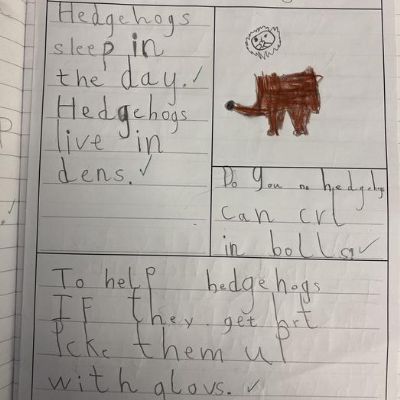 Hedgehogs
sleep in
the day.
Hedgehogs
live in
dens.
Do you no hedgehogs
can crl
in bolls
To help hedgehogs
If they get hrt
Pcke them up
with glovs.